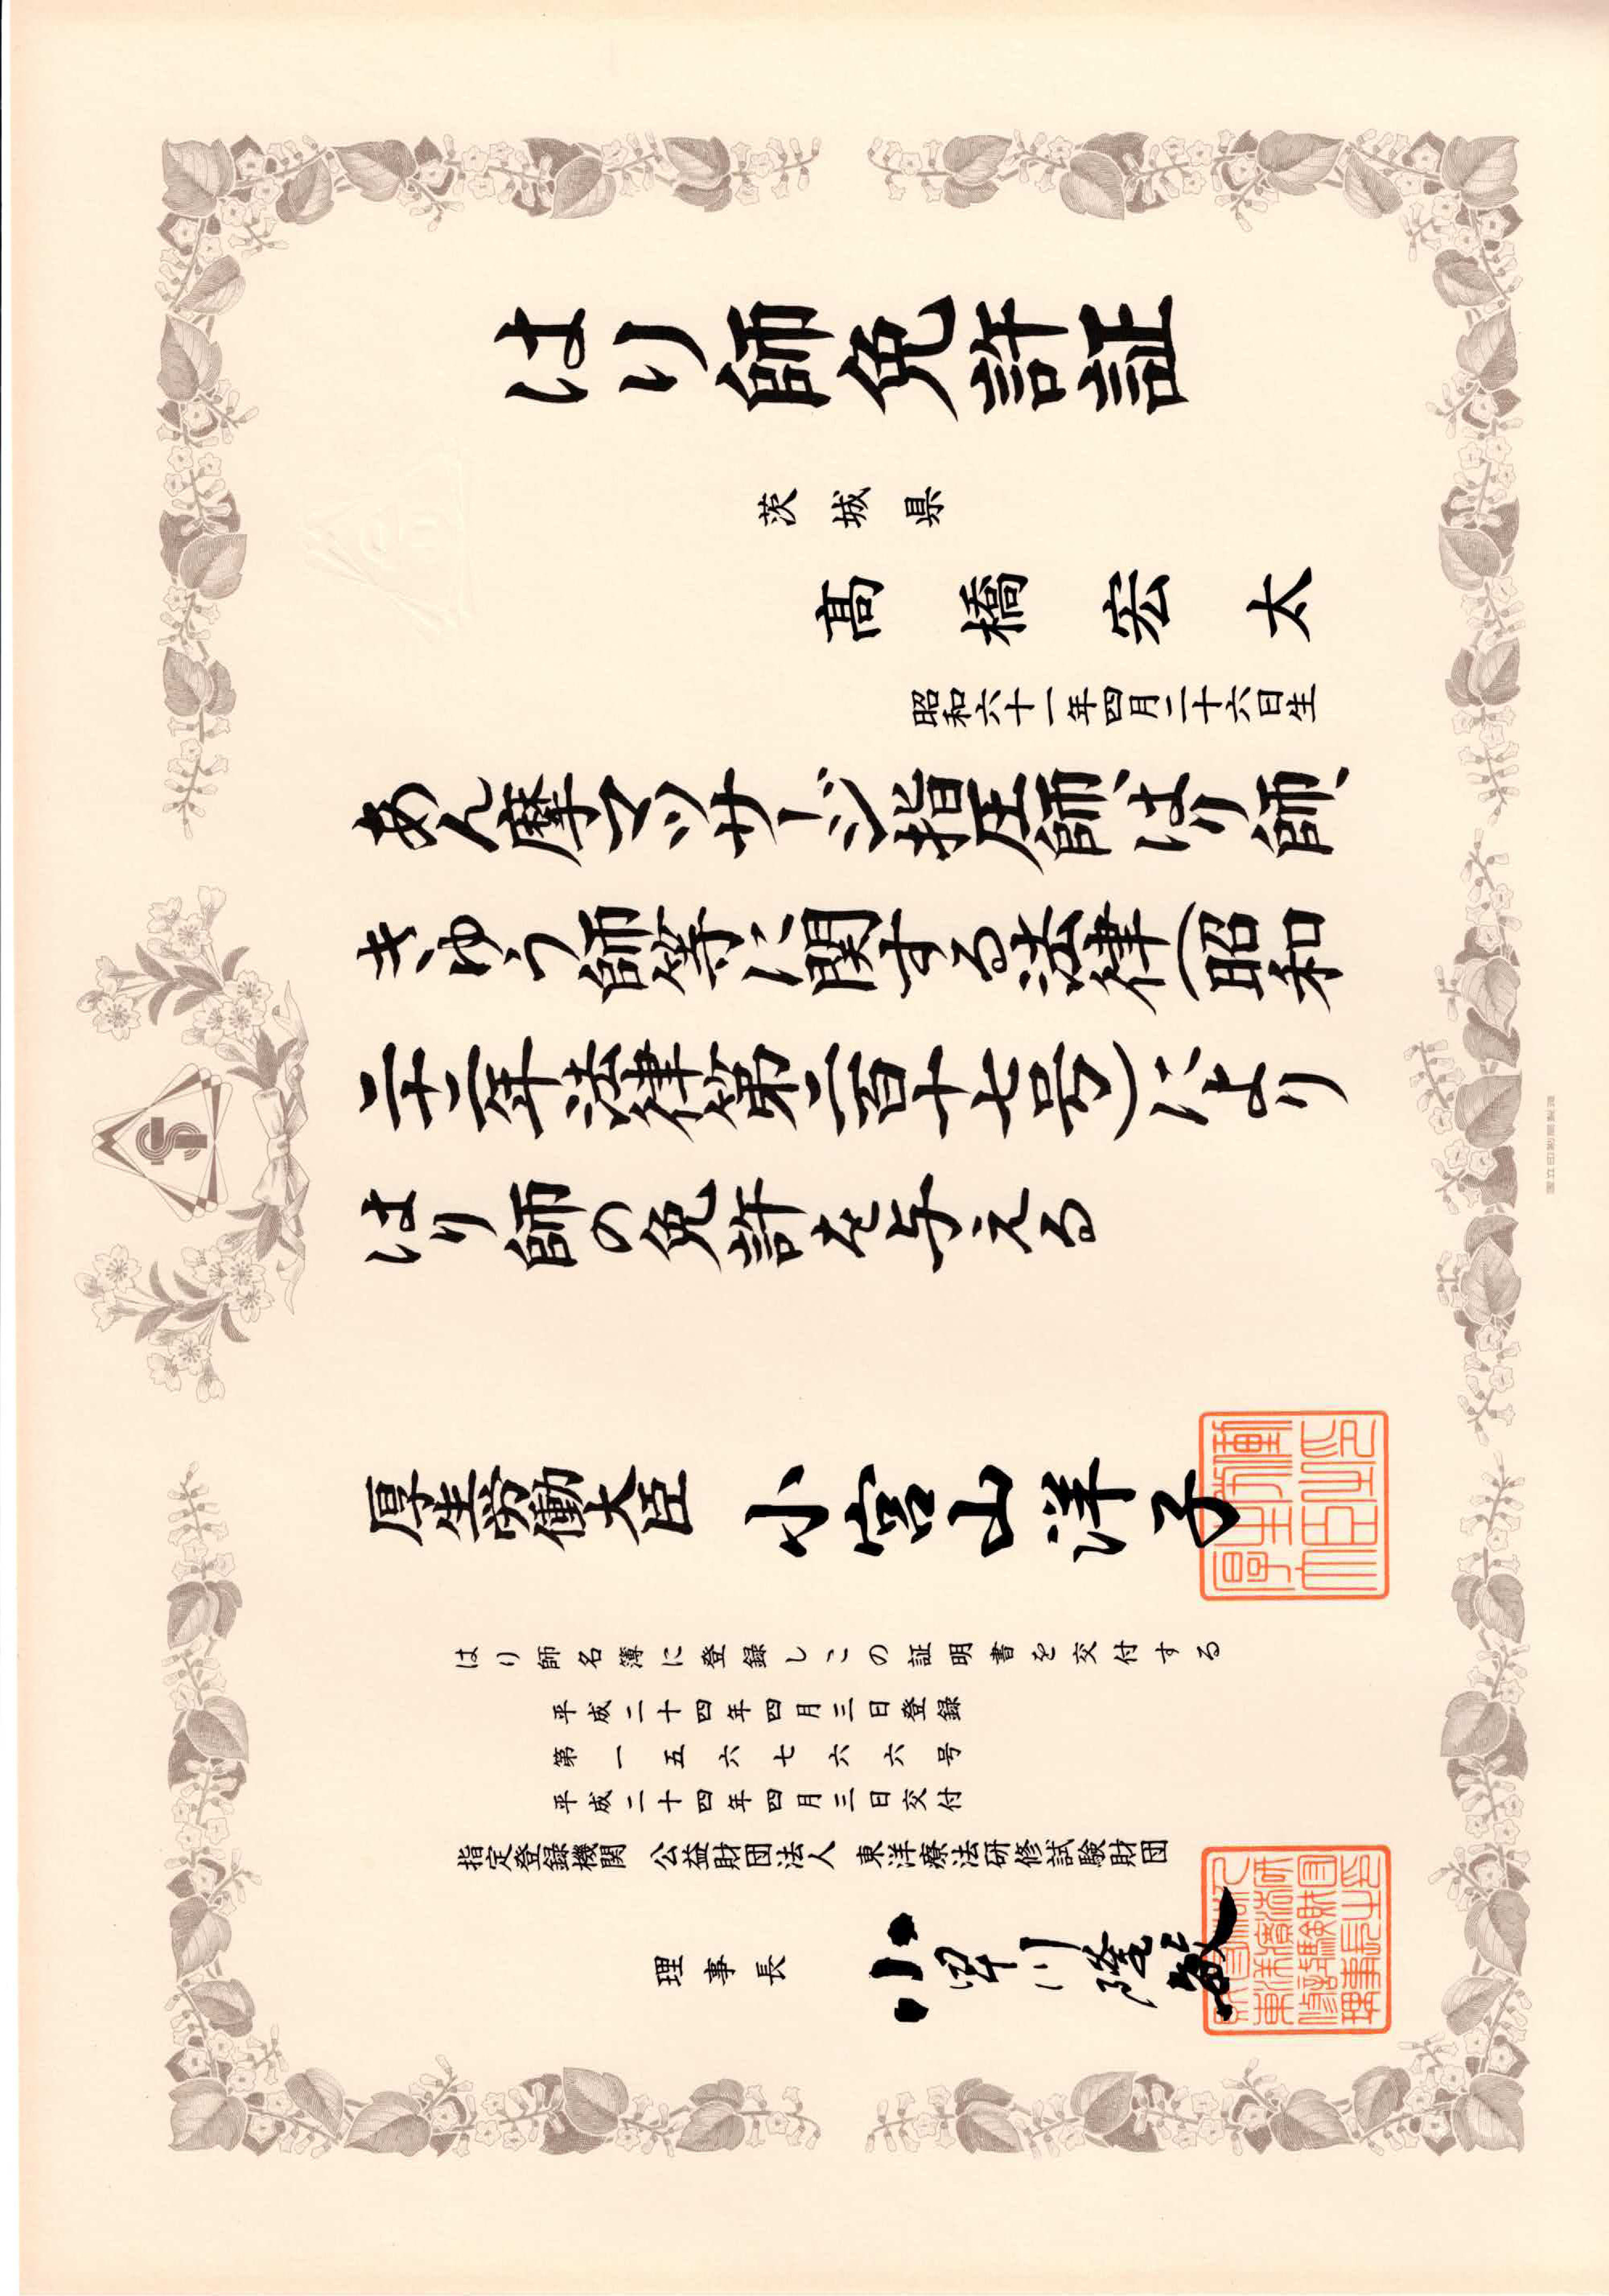 はり師免許証
茨城県
髙橋宏太
昭和六十一年四月二十六日生
あん摩マツサージ指圧師、はり師、
きゆう師等に関する法律(昭和
二十二年法律第二百十七号)により
はり師の免許を与える
厚生労働大臣 小宮山洋子
厚生労働大臣之印
はり師名簿に登録しこの証明書を交付する
平成二十四年四月三日登録
第一五六七六六号
平成二十四年四月三日交付
指定登録機関 公益財団法人 東洋療法研修試験財団
理事長
国立印刷局製造